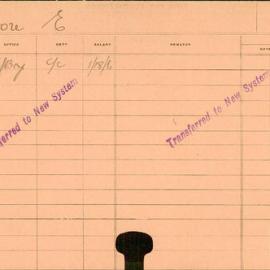 ore E
OFFICE DUTY SALARY REMARKS
C/c 1/8/6
rred to New System
Transferred to New System